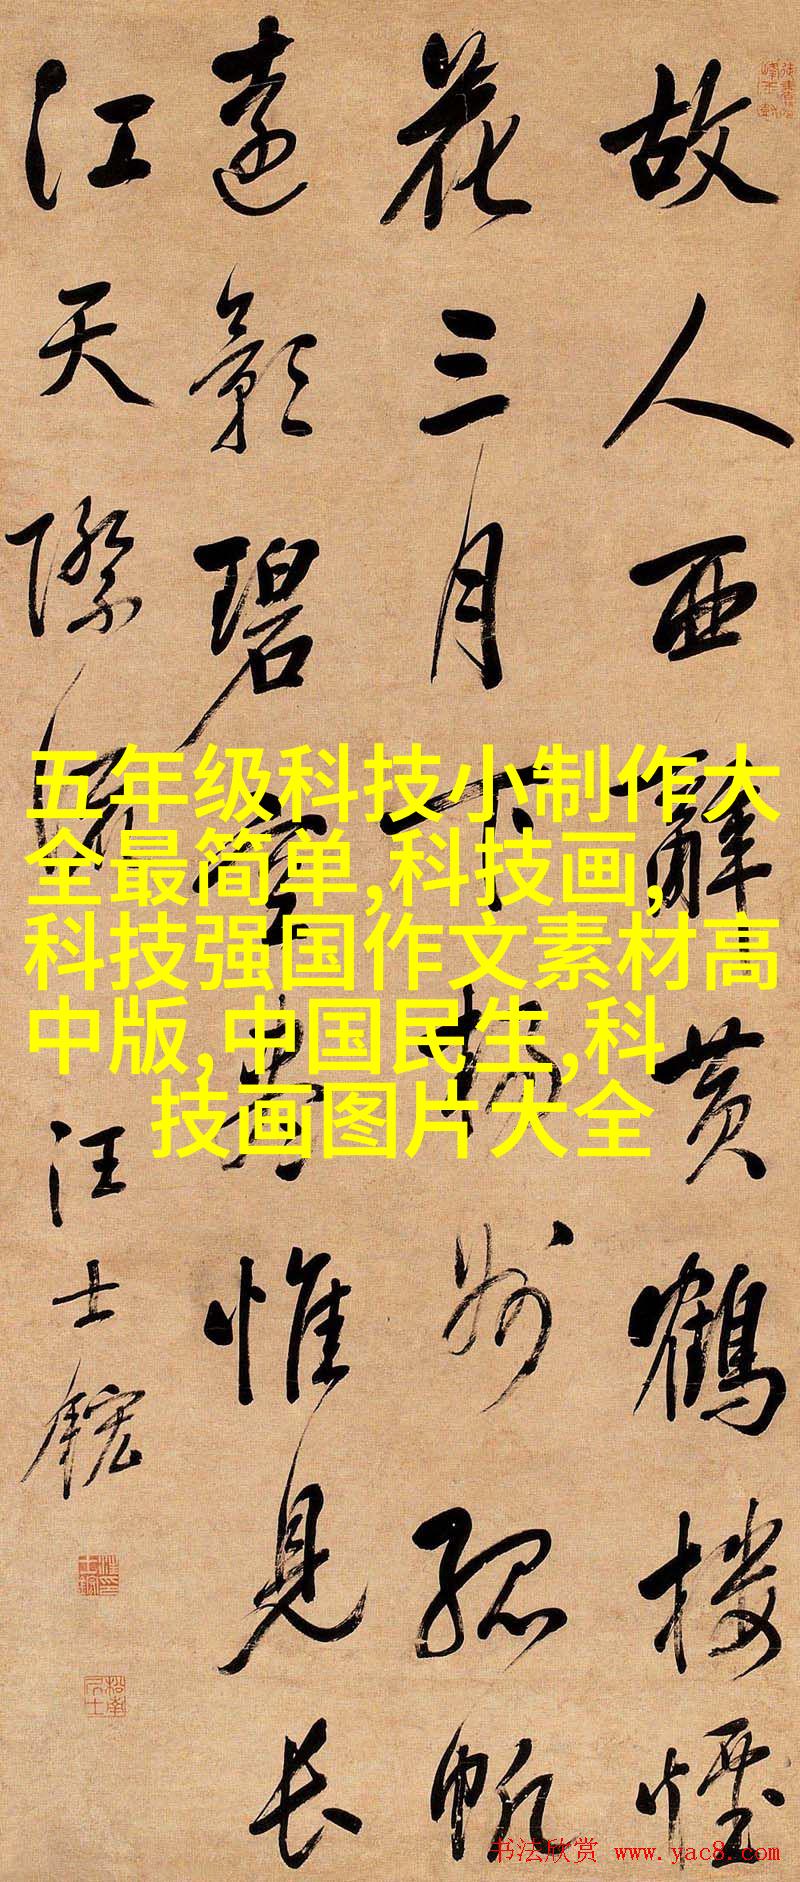 故人西辞黄鹤楼烟
花三月下扬州孤帆
远影碧空尽惟见长
江天际流
汪士鋐
五年级科技小制作大
全最简单,科技画,
科技强国作文素材高
中版,中国民生,科
技画图片大全
书法欣赏 www.yac8.com